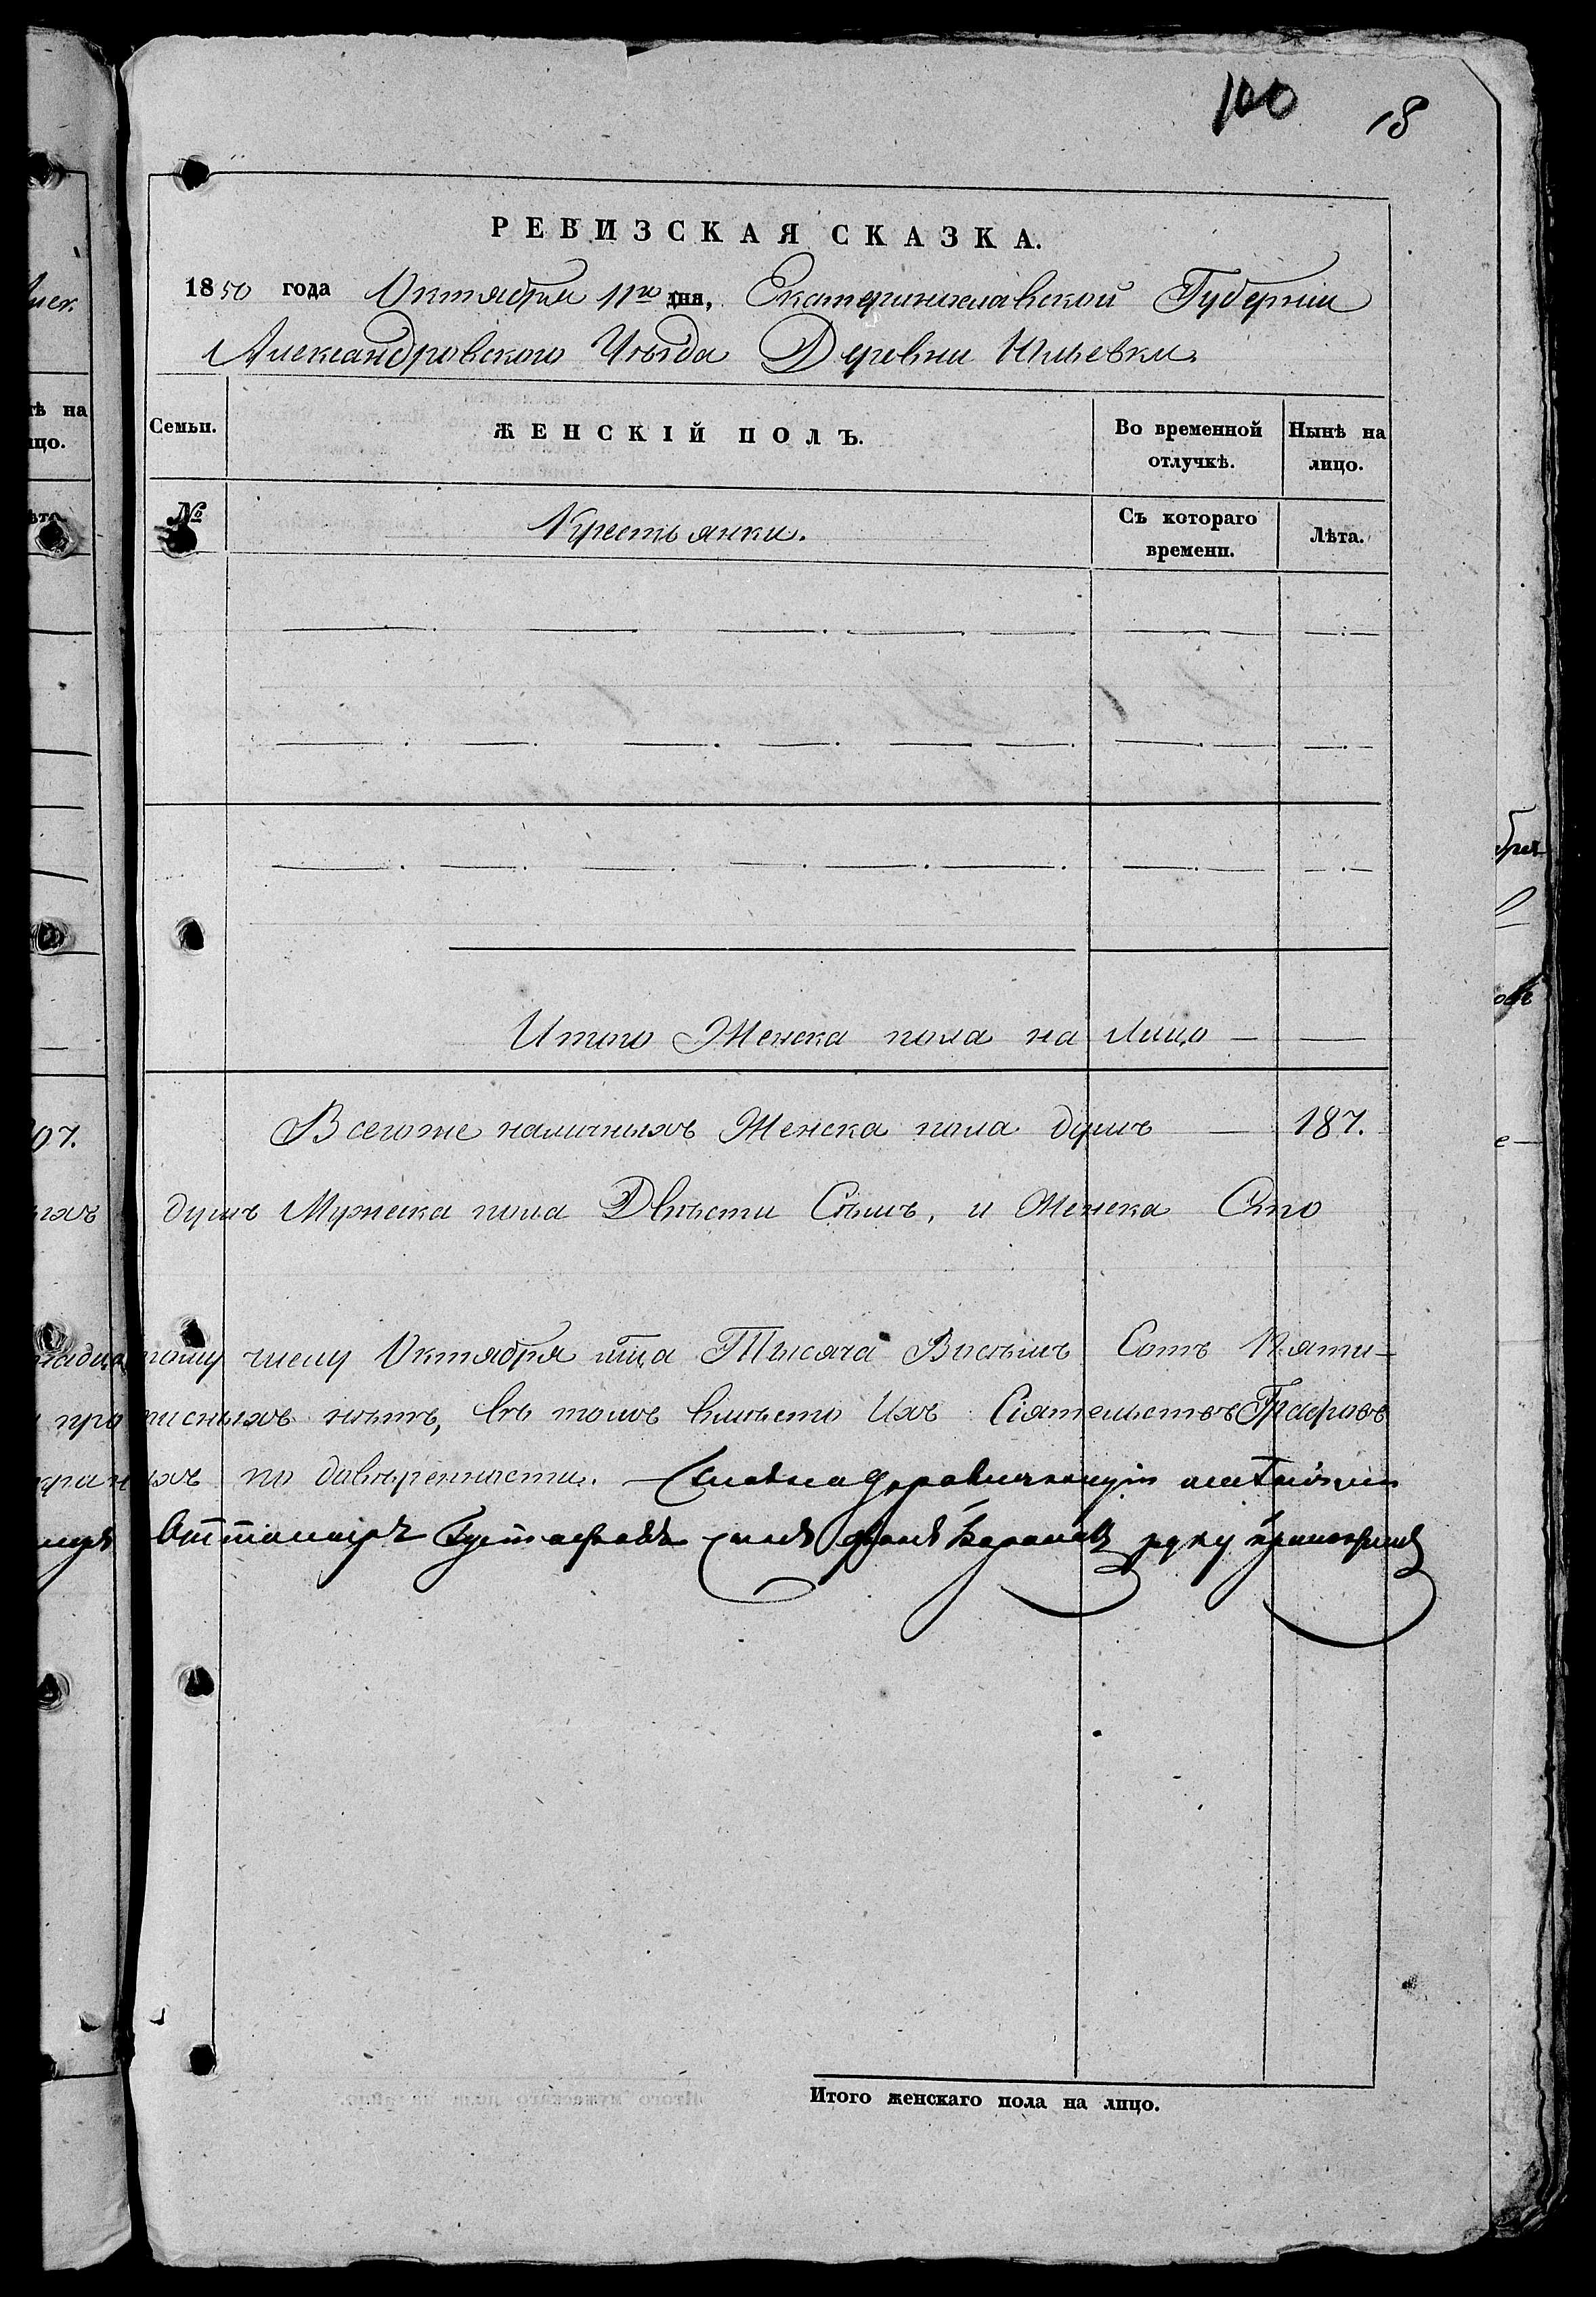 100 18
РЕВИЗСКАЯ СКАЗКА.
1850 года Октября 11го дня, Екатеринославской Губерніи
Александровского Уѣзда Деревни Юльевки.
Семьи. ЖЕНСКІЙ ПОЛЪ. Во временной отлучкѣ. Нынѣ на лицо.
№ Крестьянки. Съ котораго времени. Лѣта.
Итого Женска пола на Лицо —
Всегоже наличныхъ Женска пола душъ — 187.
душъ Мужеска пола Двѣсти Сѣмъ, и Женска Сто
числу Октября мца Тысяча Восѣмъ Сотъ Пяти-
нѣтъ, въ томъ вмѣсто Ихъ Сіятельствъ Графовъ
по довѣренности.
сынъ фонъ руку приложилъ
Итого женскаго пола на лицо.